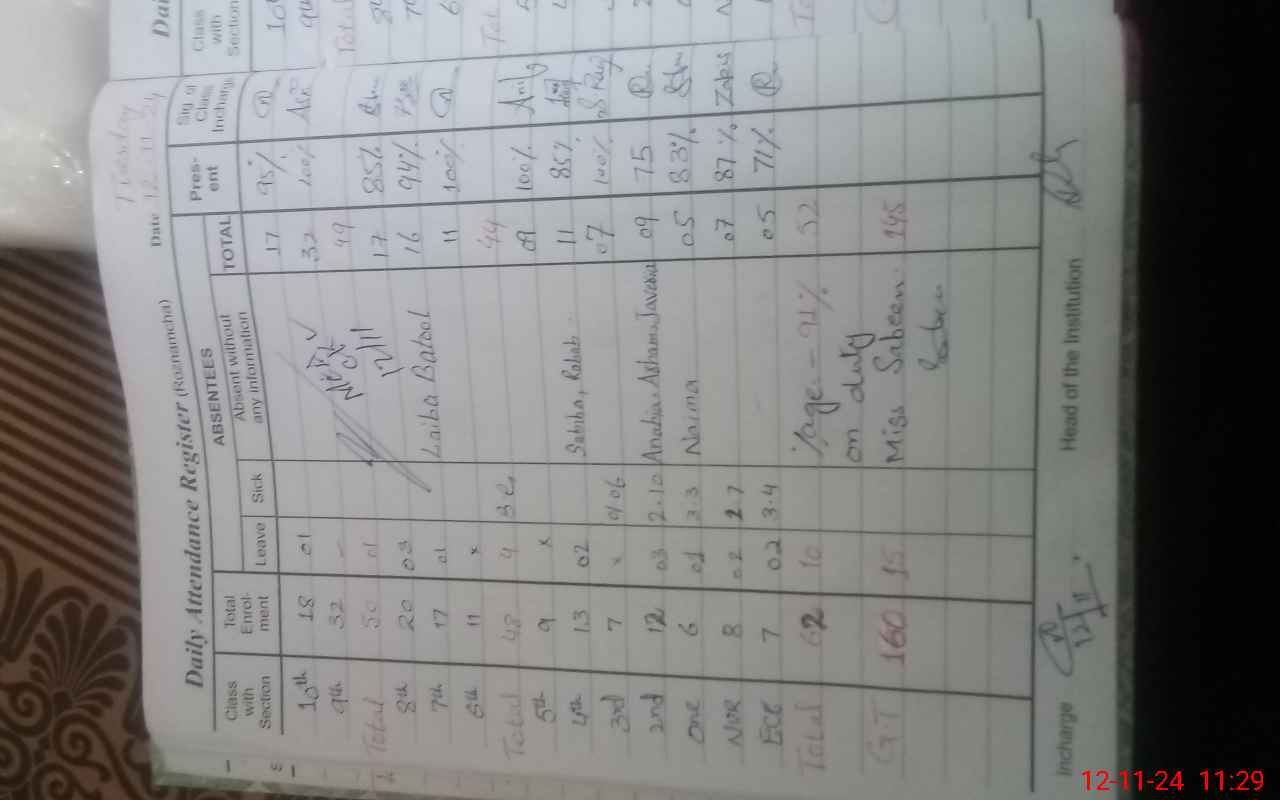 Tuesday
Date 12.11.24
Daily Attendance Register (Roznamcha)
Class with Section | Total Enrol-ment | ABSENTEES | Leave | Sick | Absent without any information | TOTAL | Pres-ent | Sig. of Class Incharge
10th 18 01 17 95%
9th 32 - 32 100%
Total 50 01 49
8th 20 03 17 85%
7th 17 01 Laiba Batool 16 94%
6th 11 × 11 100%
Total 48 4 44
5th 9 × 09 100%
4th 13 02 Sabiha, Rabab 11 85%
3rd 7 × 07 100%
2nd 12 03 2.10 09 75
One 6 01 3.3 Naima 05 83%
NUR 8 02 2.7 07 87%
ECE 7 02 3.4 05 71%
Total 62 10 %age = 91% 52
on duty
G.T 160 15 Miss Sabeen 145
12/11
Incharge Head of the Institution
Class with Section
10th
9th
Total
12-11-24 11:29